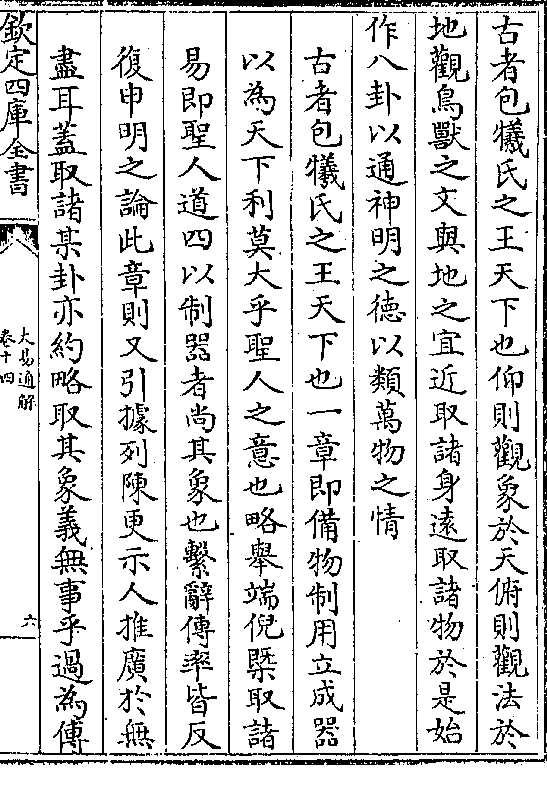 古者包犧氏之王天下也仰則觀象於天俯則觀法於
地觀鳥獸之文與地之宜近取諸身遠取諸物於是始
作八卦以通神明之德以類萬物之情
古者包犧氏之王天下也一章即備物制用立成器
以為天下利莫大乎聖人之意也略舉端倪槩取諸
易即聖人道四以制器者尚其象也繫辭傳率皆反
復申明之論此章則又引據列陳更示人推廣於無
盡耳蓋取諸某卦亦約略取其象義無事乎過為傅
欽定四庫全書
大易通解
卷十四
六